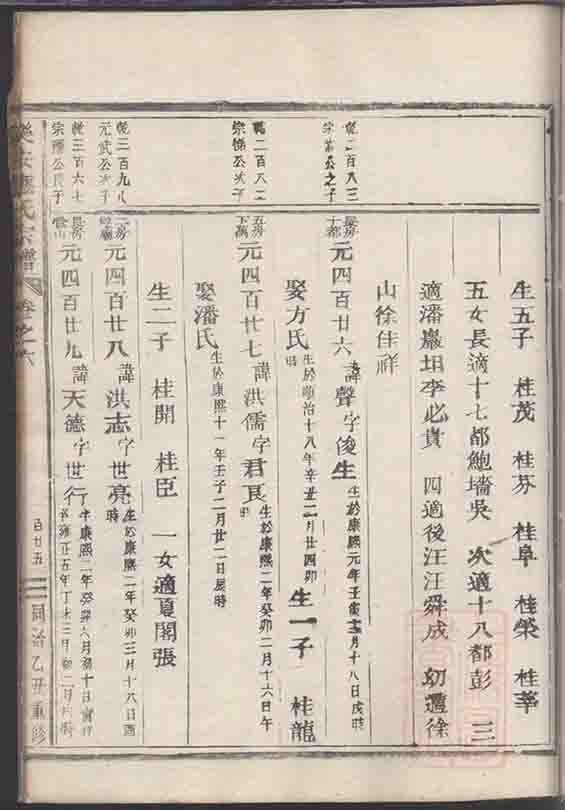 生五子 桂茂 桂芬 桂阜 桂榮 桂華
五女長適十七都鮑墻吳 次適十八都彭 三
適潘巖坦李必貴 四適後汪汪舜成 幼適徐
山徐佳祥
乾二百八三
宗 公之子
元四百廿六 諱聲 字俊生 生於康熙元年壬寅 月十八日戌時
娶方氏 生於順治十八年辛丑二月廿四卯時 生一子 桂龍
乾二百八二
宗 公次子
五房
元四百廿七 諱洪儒 字君良 生於康熙二年癸卯二月十六日午時
娶潘氏 生於康熙十一年壬子二月廿二日辰時
生二子 桂開 桂臣 一女適夏閣張
乾三百九八
元武公次子
元四百廿八 諱洪志 字世亮 生於康熙二年癸卯三月十八日酉時
乾三百六七
宗 公長子
長房
元四百廿九 諱天德 字世行 生康熙二年癸卯六月初十日寅時
雍正五年丁未三月
氏宗譜 卷之六 百廿五 同治乙丑重修